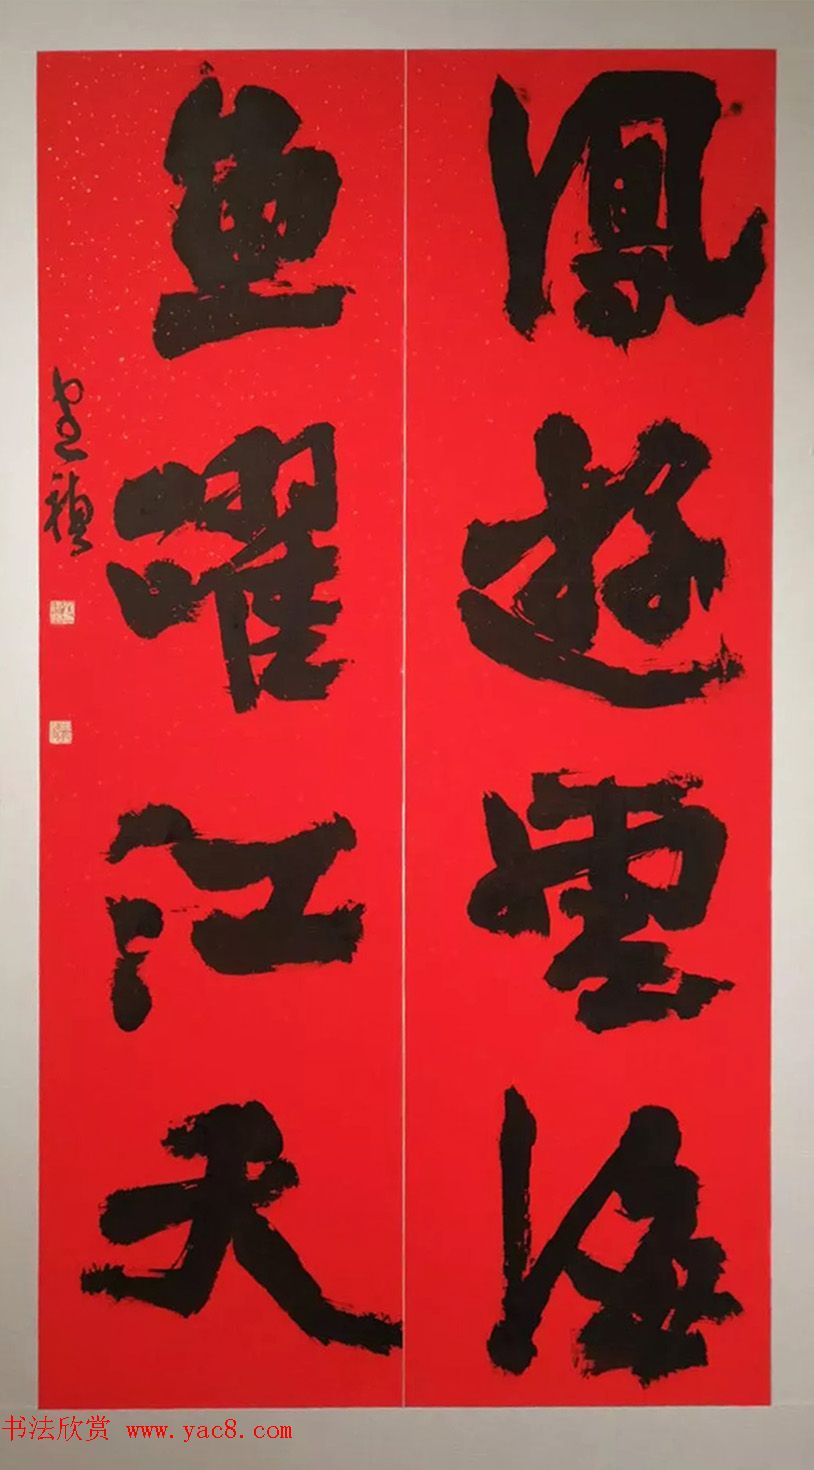 鳳遊雲海
魚躍江天
书法欣赏 www.yac8.com